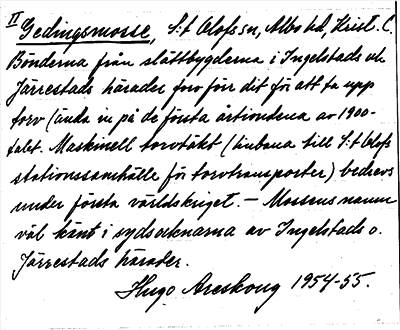 II
Gedingsmosse, S:t Olofs sn, Albo hd, Krist. C.
Bönderna från slättbygderna i Ingelstads och
Järrestads härader foro förr dit för att ta upp
torv (ända in på de första årtiondena av 1900-
talet. Maskinell torvtäkt (linbana till S:t Olofs
stationssamhälle för torvtransporter) bedrevs
under första världskriget. – Mossens namn
väl känt i sydsocknarna av Ingelstads o.
Järrestads härader.
Hugo Areskoug 1954-55.